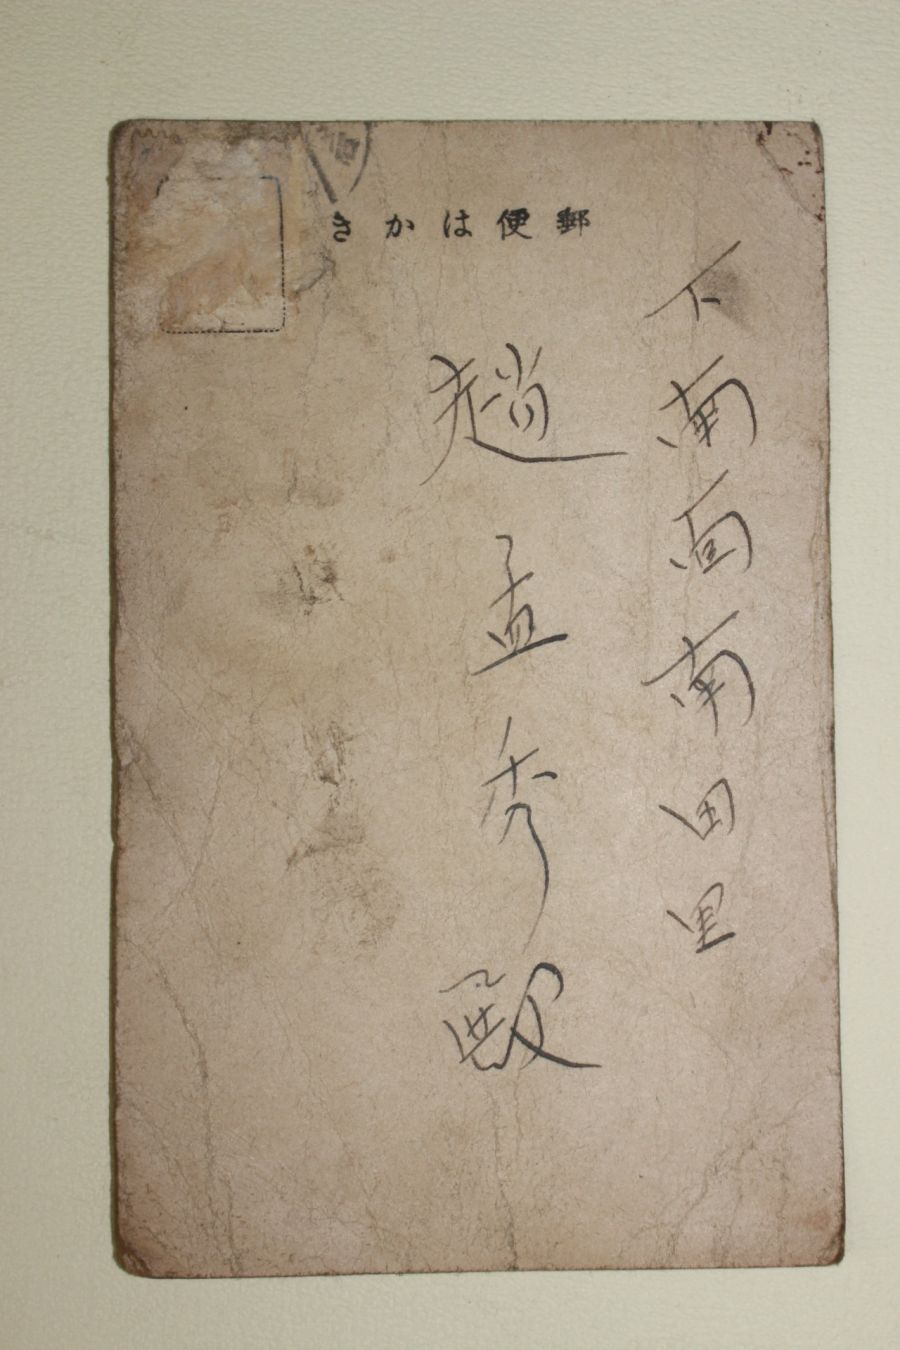 郵便はかき
下南面南田里
趙孟秀殿